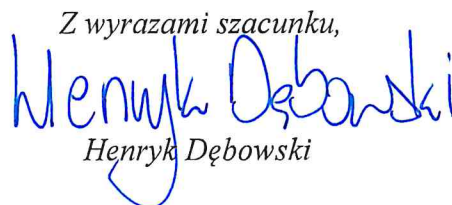 Z wyrazami szacunku,
Henryk Dębowski
Henryk Dębowski